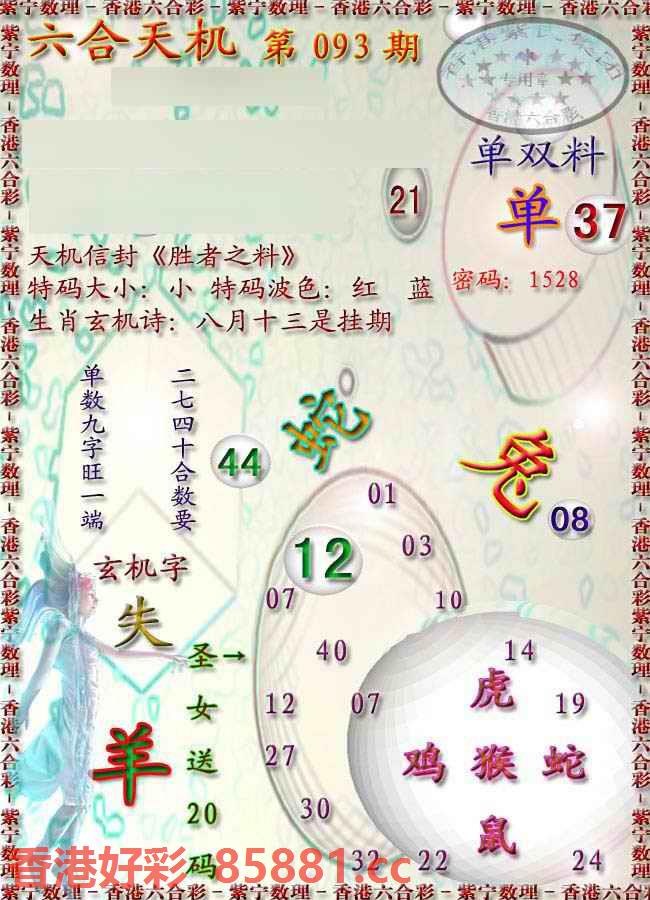 紫宁数理－香港六合彩－紫宁数理－香港六合彩－紫宁数理－香港六合彩－紫宁数理
六合天机 第093期
专用章
香港六合彩
单双料
单 37
21
天机信封《胜者之料》
特码大小：小 特码波色：红 蓝
密码：1528
生肖玄机诗：八月十三是挂期
单数九字旺一端
二七四十合数要
44
蛇
兔
08
01
12
03
07
10
玄机字
失
圣女送20码
→
40
14
12
07
虎
19
羊
27
鸡 猴 蛇
30
鼠
32
22
24
香港好彩 85881.cc
紫宁数理－香港六合彩－紫宁数理－香港六合彩－紫宁数理－香港六合彩－紫宁数理